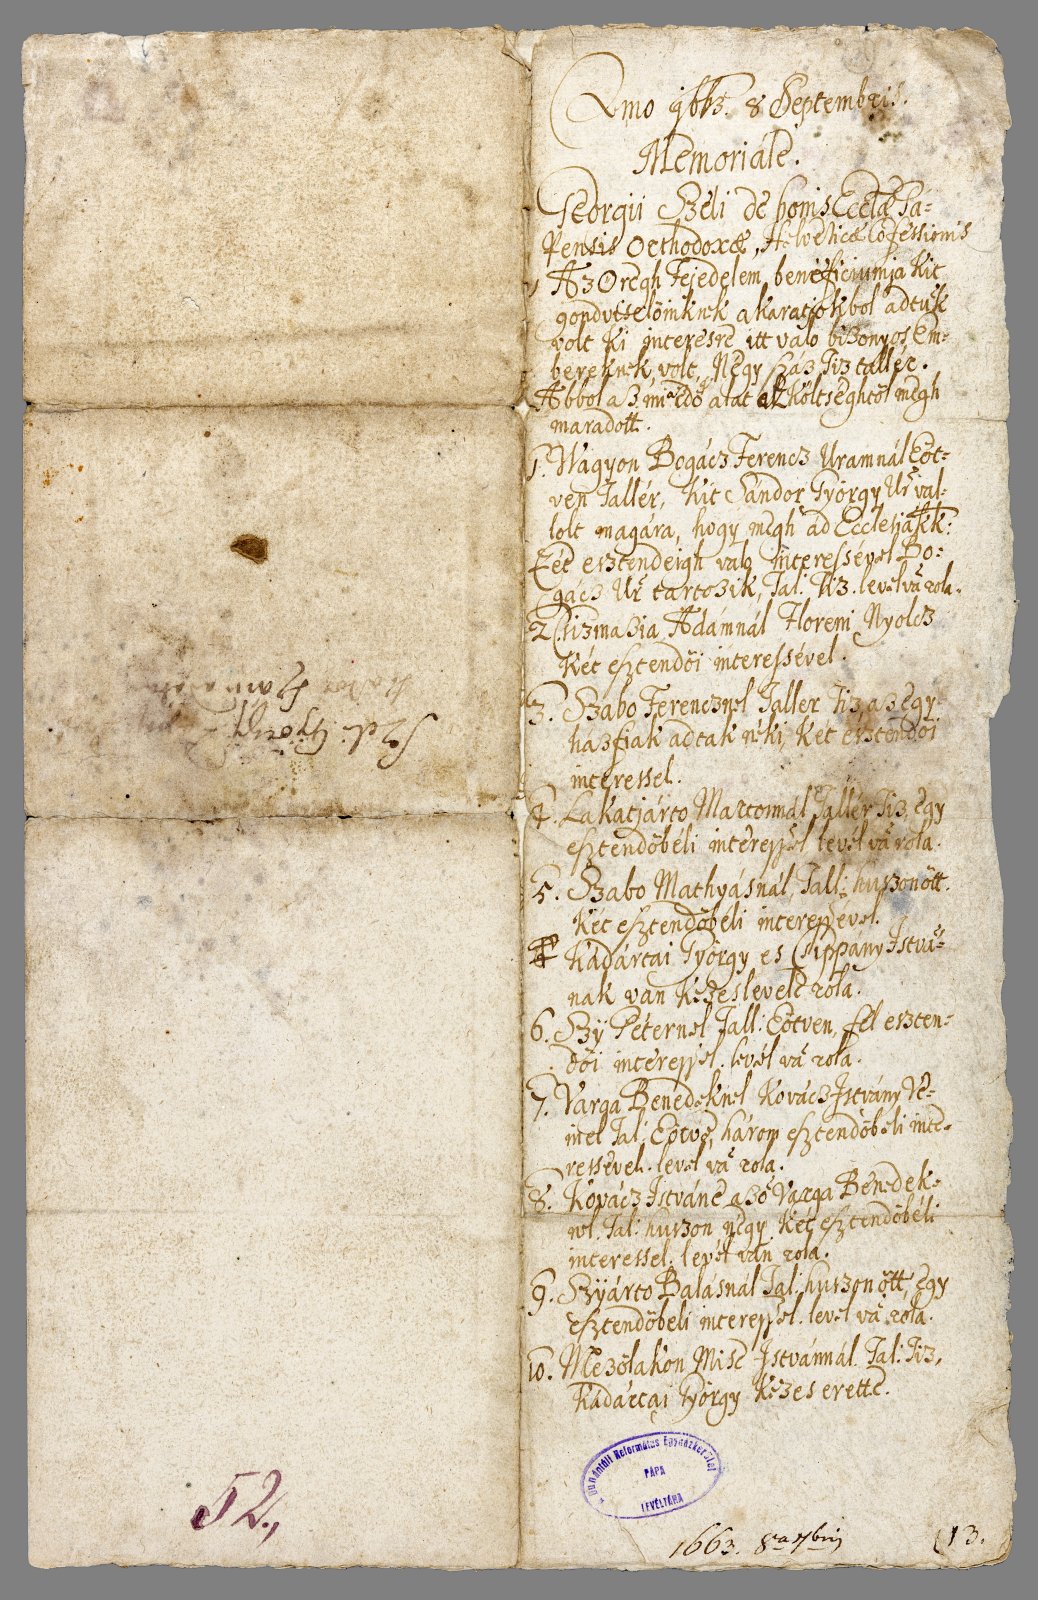 Anno 1663. 8 Septembris.
Memoriale.
Georgii Széli de bonis Ecclæ Pá-
pensis Orthodoxæ, Helveticæ Cōfessionis
Az Oregh Fejedelem beneficiumja kit
gondviselöinknek akarattjokbol adtuk
volt ki interesre itt valo bizonyos Em-
bereknek volt, Négy száz Tiz tallér.
Abbol az mi az költseghtöl megh
maradott.
1. Vagyon Bogácz Ferencz Uramnál Eöt-
ven Tallér, kit Sándor György Ur̄ val-
lolt magára, hogy megh ad Ecclesjáńk:
Két esztendeigh valo interessével Bo-
gácz Ur̄ tartozik, Tal: Tiz. levél vā rola.
2. Csizmazia Adámnál Floreni Nyolcz
két esztendöi interessével.
3. Szabo Ferencznel Taller Tiz, az egy-
házfiak adtak néki, két esztendöi
interessel.
4. Lakatjárto Martonnál Tallér Tiz, egy
esztendöbéli interessel levél vā rola.
5. Szabo Mathyásnál, Tall: huszonött.
két esztendöbéli interessével.
Kádártai György es Csippany Istvá-
nak van kezeslevele rola.
6. Szÿ Péternel Tall: Eötven, fél eszten-
döi interessel. levél vā rola.
7. Varga Benedeknel Kovácz Istvány Ve-
inel Tal: Eötvē, három esztendöbéli inte-
ressével. level vā rola.
8. Kovácz Istváne azō Varga Benedek-
nel. Tal: huszon négy. Két esztendöbéli
interessel. levél van rola.
9. Szÿárto Balásnál Tal: huszonött, egy
esztendöbeli interessél. level vā rola.
10. Mezölakon Mise Istvánnál Tal: Tiz,
Kádártai György kezes erette.
Dunántúli Református Egyházkerület
PÁPA
LEVÉLTÁRA
1663. 8ᵃ 7bris
(13.
Széli György
52.,